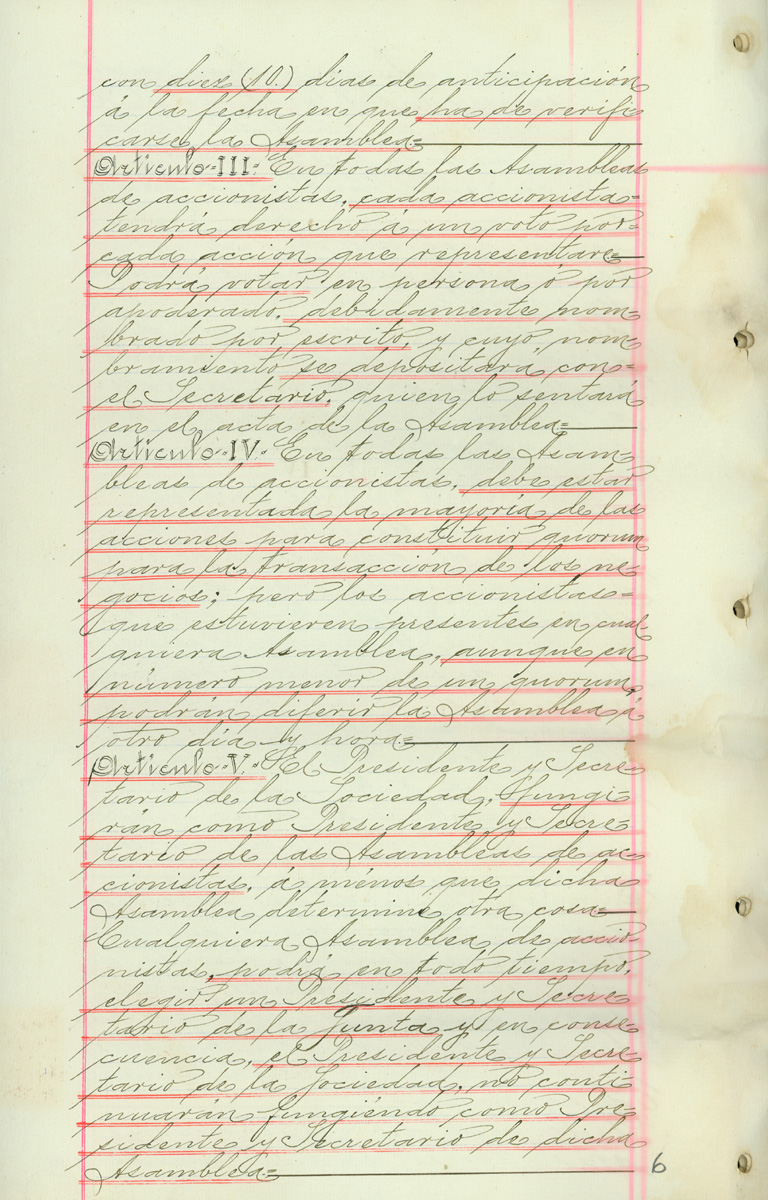 con diez (10.) dias de anticipación
á la fecha en que ha de verifi
carse la Asamblea=
Articulo-III. En todas las Asambleas
de accionistas, cada accionista-
tendrá derecho á un voto por-
cada acción que representare
Podrá votar en persona ó por
apoderado, debidamente nom
brado por escrito, y cuyo nom
bramiento se depositará con-
el Secretario, quien lo sentará
en el acta de la Asamblea=
Articulo-IV.- En todas las Asam-
bleas de accionistas, debe estar
representada la mayoria de las
acciones para constituir quorum
para la transacción de los ne
gocios; pero los accionistas-
que estuvieren presentes en cual-
quiera Asamblea, aunque en
número menor de un quorum,
podrán diferir la Asamblea á
otro dia y hora=
Articulo-V.- El Presidente y Secre
tario de la Sociedad, fungi-
rán como Presidente y Secre-
tario de las Asambleas de ac-
cionistas, á ménos que dicha
Asamblea determine otra cosa
Cualquiera Asamblea de accio-
nistas, podrá en todo tiempo,
elegir un Presidente y Secre
tario de la Junta y en conse
cuencia, el Presidente y Secre
tario de la Sociedad, no conti
nuarán fungiendo como Pre-
sidente y Secretario de dicha
Asamblea=
6